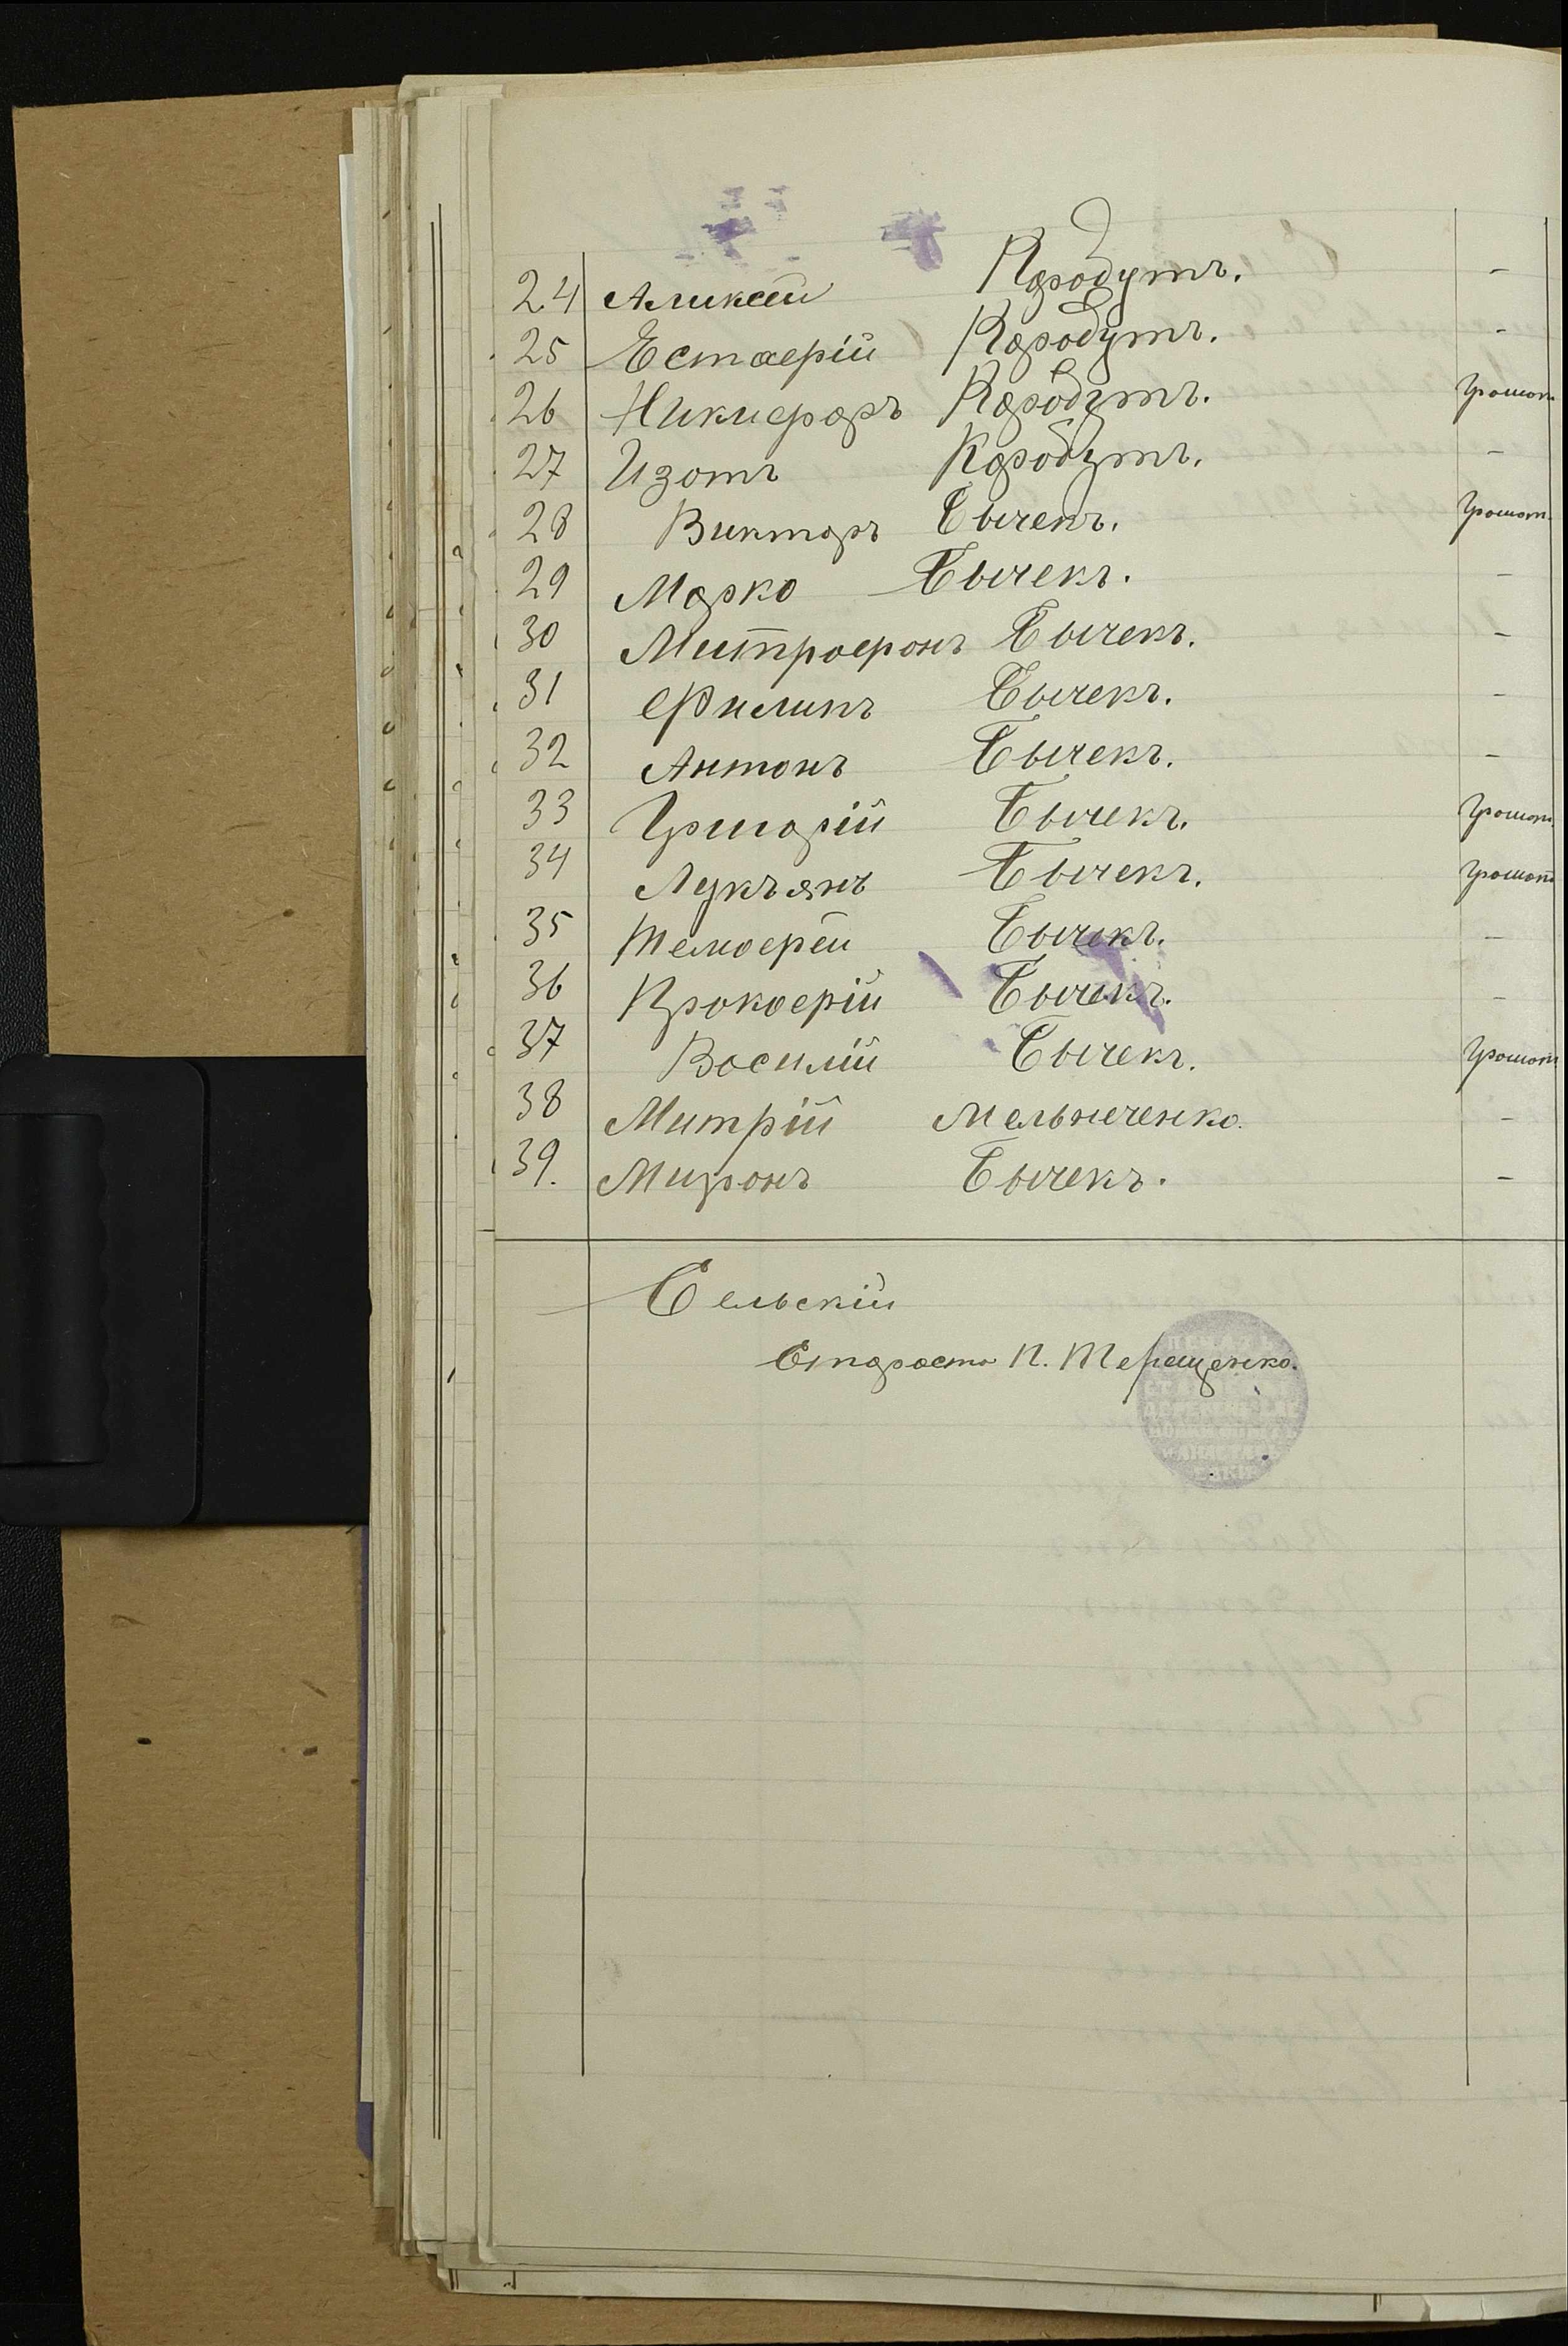 24 Аликсей Карабутъ. -
25 Естафрій Карабутъ. -
26 Никифаръ Карабутъ. грамот.
27 Изотъ Карабутъ. -
28 Викторъ Бычекъ. грамот.
29 Марко Бычекъ. -
30 Митрофонъ Бычекъ. -
31 Филипъ Бычекъ. -
32 Антонъ Бычекъ. -
33 Григорій Бычекъ. грамот.
34 Лукъянъ Бычекъ. грамот
35 Темофей Бычекъ. -
36 Прокофій Бычекъ. -
37 Василій Бычекъ. грамот
38 Митрій Мельниченко. -
39. Миронъ Бычекъ. -
Сельскій
Староста П. Терещенко.